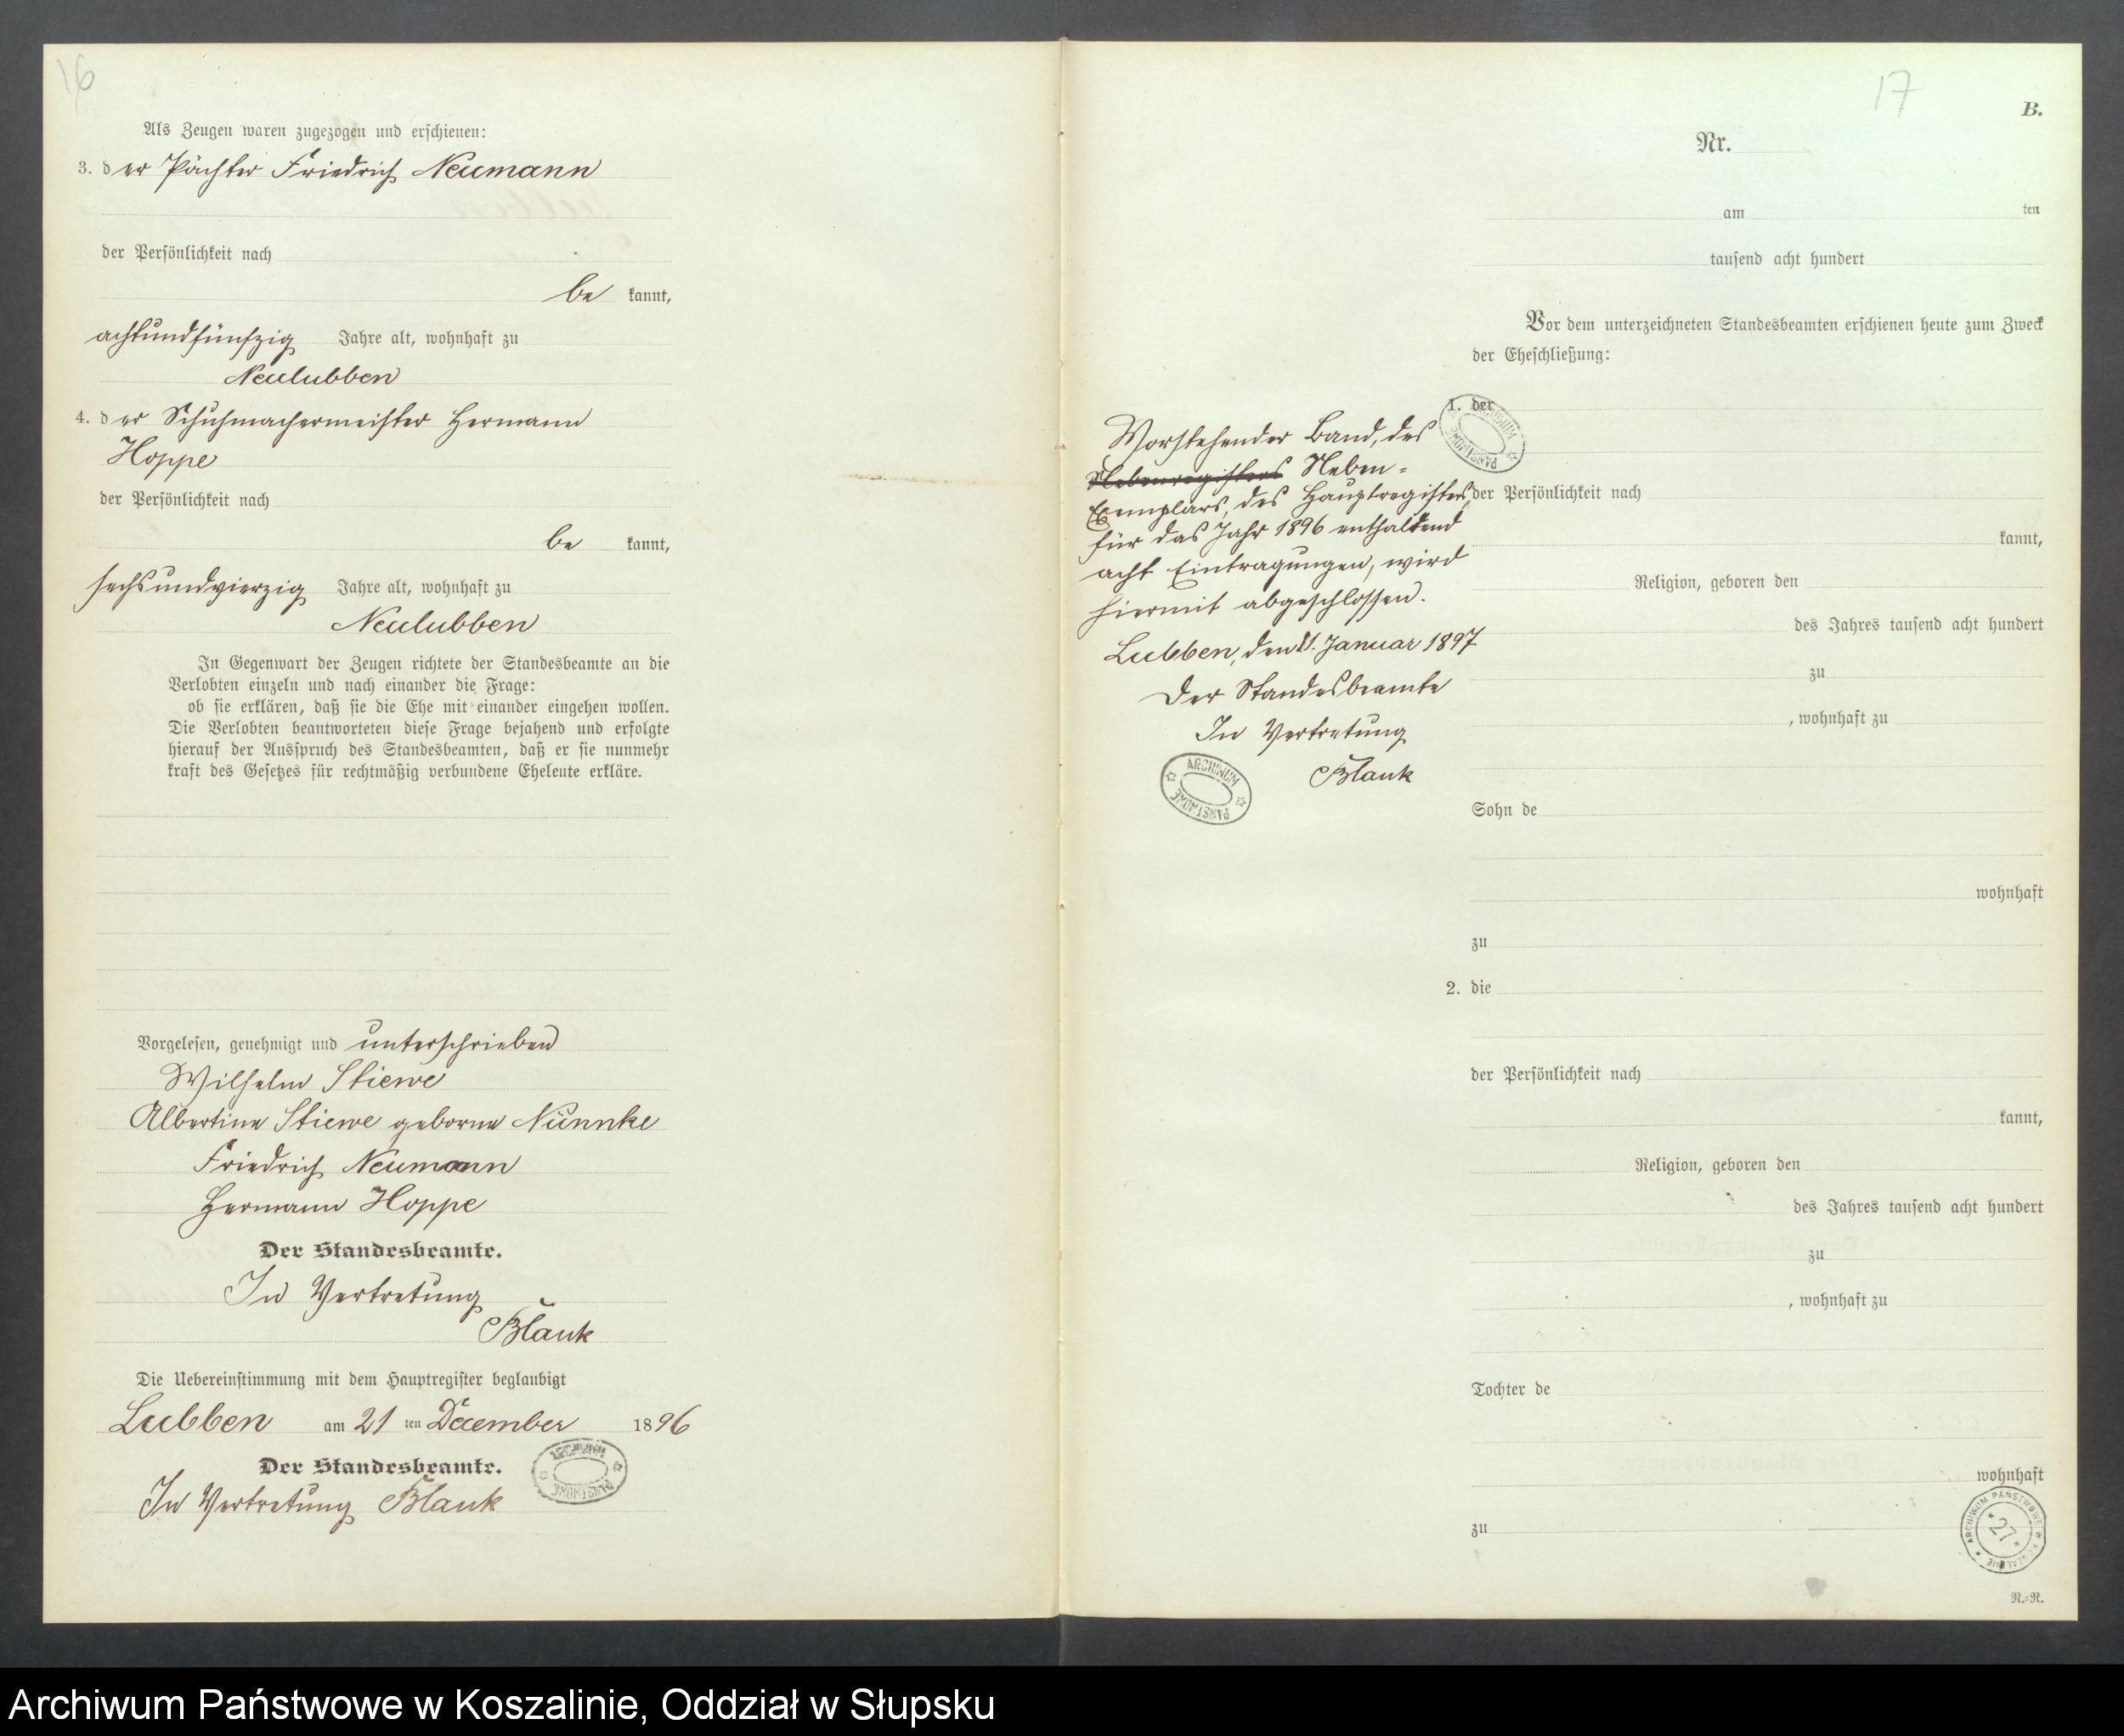 16
Als Zeugen waren zugezogen und erschienen:
3. d er Pächter Friedrich Neumann
der Persönlichkeit nach
be kannt,
achtundfünfzig Jahre alt, wohnhaft zu
Neulubben
4. d er Schuhmachermeister Hermann
Hoppe
der Persönlichkeit nach
be kannt,
sechsundvierzig Jahre alt, wohnhaft zu
Neulubben
In Gegenwart der Zeugen richtete der Standesbeamte an die
Verlobten einzeln und nach einander die Frage:
ob sie erklären, daß sie die Ehe mit einander eingehen wollen.
Die Verlobten beantworteten diese Frage bejahend und erfolgte
hierauf der Ausspruch des Standesbeamten, daß er sie nunmehr
kraft des Gesetzes für rechtmäßig verbundene Eheleute erkläre.
Vorgelesen, genehmigt und unterschrieben
Wilhelm Stiewe
Albertine Stiewe geborne Nünnke
Friedrich Neumann
Hermann Hoppe
Der Standesbeamte.
In Vertretung
Blank
Die Uebereinstimmung mit dem Hauptregister beglaubigt
Lubben am 21 ten December 1896
Der Standesbeamte.
In Vertretung Blank
ARCHIWUM PAŃSTWOWE
17
B.
Nr.
am ten
tausend acht hundert
Vor dem unterzeichneten Standesbeamten erschienen heute zum Zweck
der Eheschließung:
1. der
ARCHIWUM PAŃSTWOWE
der Persönlichkeit nach
kannt,
Religion, geboren den
des Jahres tausend acht hundert
zu
, wohnhaft zu
Sohn de
wohnhaft
zu
2. die
der Persönlichkeit nach
kannt,
Religion, geboren den
des Jahres tausend acht hundert
zu
, wohnhaft zu
Tochter de
wohnhaft
zu
ARCHIWUM PAŃSTWOWE W KOSZALINIE
*27*
N.=N.
Vorstehender Band, des
Nebenregisters Neben-
Exemplars, des Hauptregisters,
für das Jahr 1896 enthaltend
acht Eintragungen, wird
hiermit abgeschlossen.
Lubben, den 1. Januar 1897
Der Standesbeamte
In Vertretung
Blank
ARCHIWUM PAŃSTWOWE
Archiwum Państwowe w Koszalinie, Oddział w Słupsku